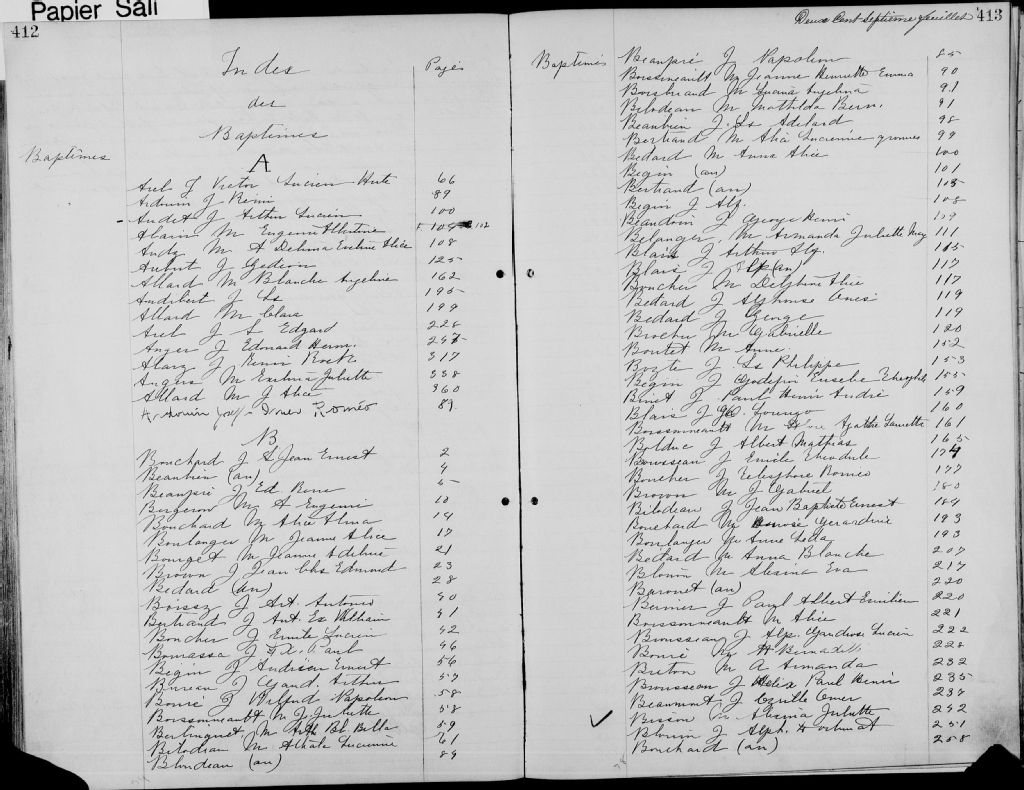 Papier Sali
412
Index
Pages
des
Baptêmes
Baptêmes
A
Arel J Victor Lucien 66
Arduin J Remi 89
Audet J Arthur Lucien 100
Alain M Eugenie Albertine 102
Audy M A Delima Eveline Alice 108
Aubut J Gedeon 125
Allard M Blanche Angelina 162
Audibert J Ls 195
Allard M Clara 199
Arel J L Edgard 228
Anger J Edmond Herm. 245
Alary J Henri Roch 317
Angers M Exilina Juliette 338
Allard M J Alice 360
Roméo 89
B
Bouchard J S Jean Ernest 2
Beaubien (an) 4
Beaupré J Ed. René 5
Bergeron M A Eugenie 10
Bouchard M Alice Alma 14
Boulanger M Jeanne Alice 17
Bourget M Jeanne 21
Brown J Jean Chs Edmond 23
Bedard (an) 28
Boissy J Art. Antonio 40
Bertrand J Ant. Ex William 41
Boucher J Emile Lucien 42
Bourassa J Fx. Paul 46
Begin J Andrien Ernest 56
Bureau J Gaud. Arthur 57
Bouré J Wilfrid Napoleon 58
Boissonneault M J Juliette 58
Berlinguet M Bl. Bella 59
Bilodeau M Lucienne 61
Blondeau (an) 89
Deux Cent Septième feuillet 413
Baptêmes
Beaupré J Napoleon 85
Boissoneault M Jeanne Henriette Emma 90
Boisbriand M Lucina Angelina 91
Bilodeau M Mathilda Bern. 91
Beaubien J. Ls Adelard 98
Bertrand M Alia Lucienne 99
Bedard M Anna Alice 100
Begin (an) 101
Bertrand (an) 105
Begin J Alf. 108
Beaudoin J George Henri 109
Belanger, M Armanda Juliette 111
Blais J Arthur 115
Blais J (an) 117
Boucher M Delphine Alice 117
Bedard J Alphonse 119
Bedard J George 119
Brochu M Gabrielle 120
Boutet M Anne 152
J Ls Philippe 153
Begin J Godefroi Eusebe 155
Binet J. Paul Henri André 159
Blais J 160
Boissonneault M Agathe Laurette 161
Bolduc J Albert Mathias 165
Brousseau J Emile Theodule 174
Boucher J Telesphore Romeo 177
Brown M J Gabriel 180
Bilodeau J Jean Baptiste Ernest 184
Bouchard M Gerardine 193
Boulanger M Anne Lella 193
Bedard M Anna Blanche 207
Blouin M Alesina Eva 217
Baronet (an) 220
Bernier J Paul Albert Emilien 220
Boissonneault M Alice 221
Brousseau J Alp. Lucien 222
Bourré M Bernadette 228
Breton M A Armanda 232
Brousseau J Felix Paul Henri 235
Beaumont J Cyrille Omer 238
Bisson M Alesma Juliette 242
Blouin J Alph. Fortunat 251
Bouchard (an) 258